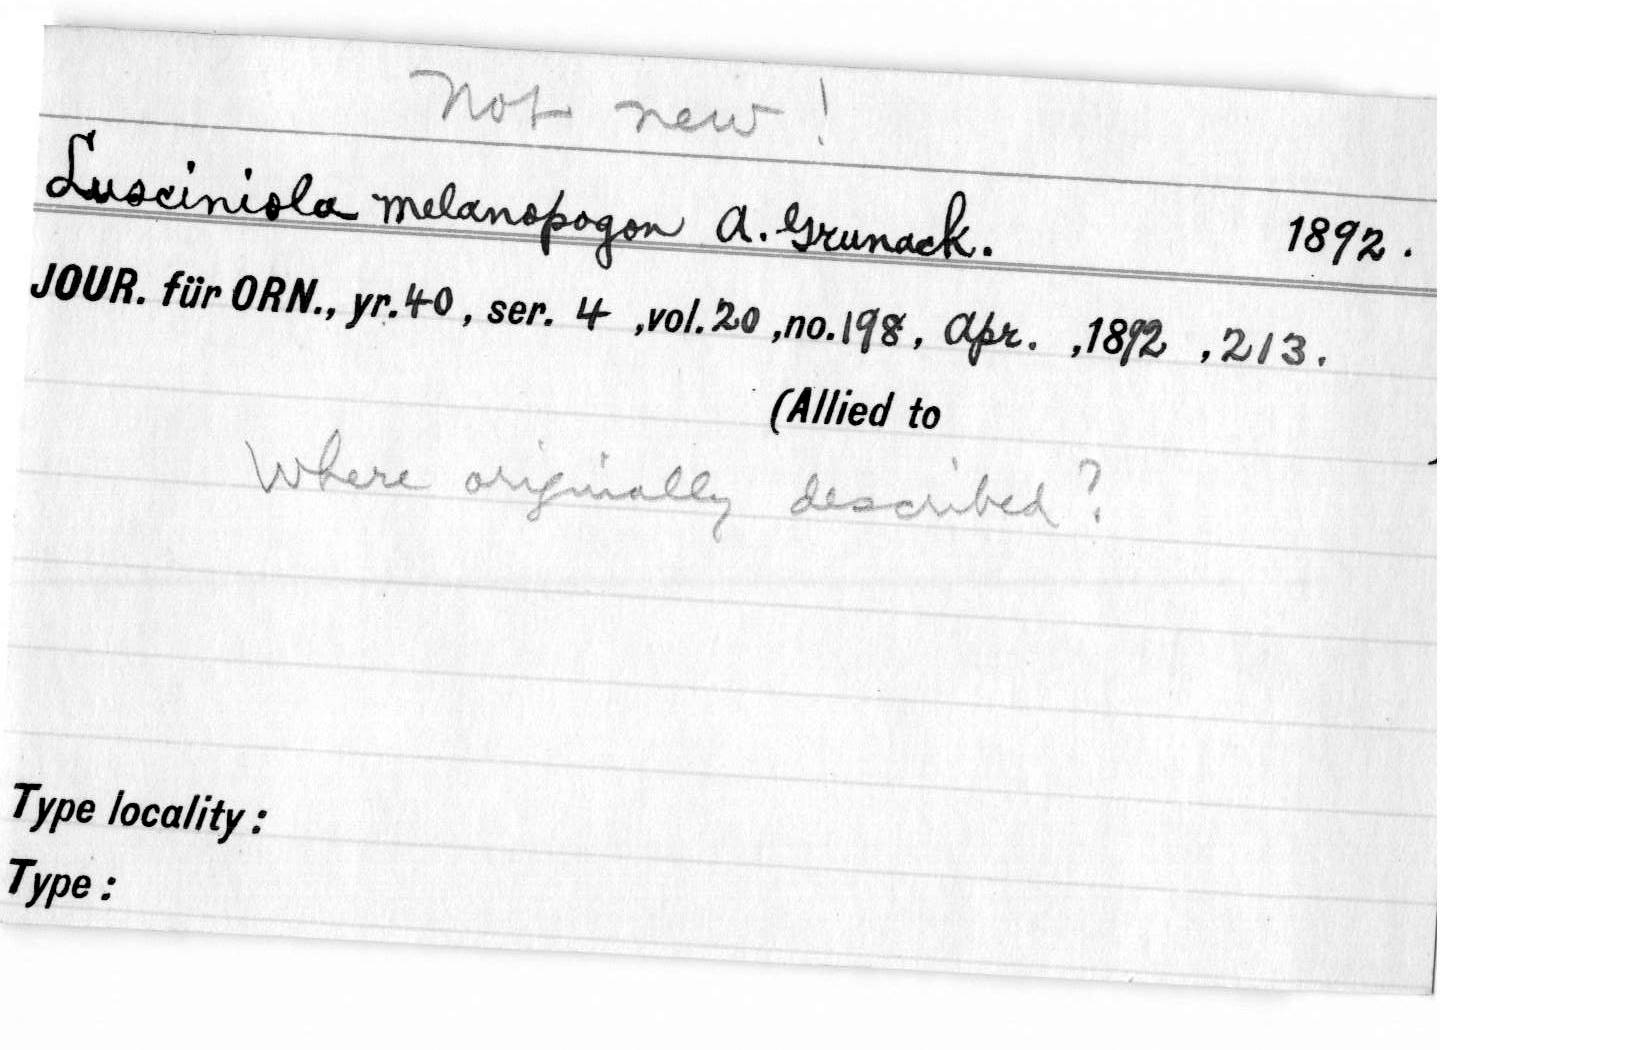 Not new!
Lusciniola melanopogon A. Grunack. 1892.
JOUR. für ORN., yr. 40, ser. 4, vol. 20, no. 198, Apr. , 1892, 213.
(Allied to )
Where originally described?
Type locality:
Type: